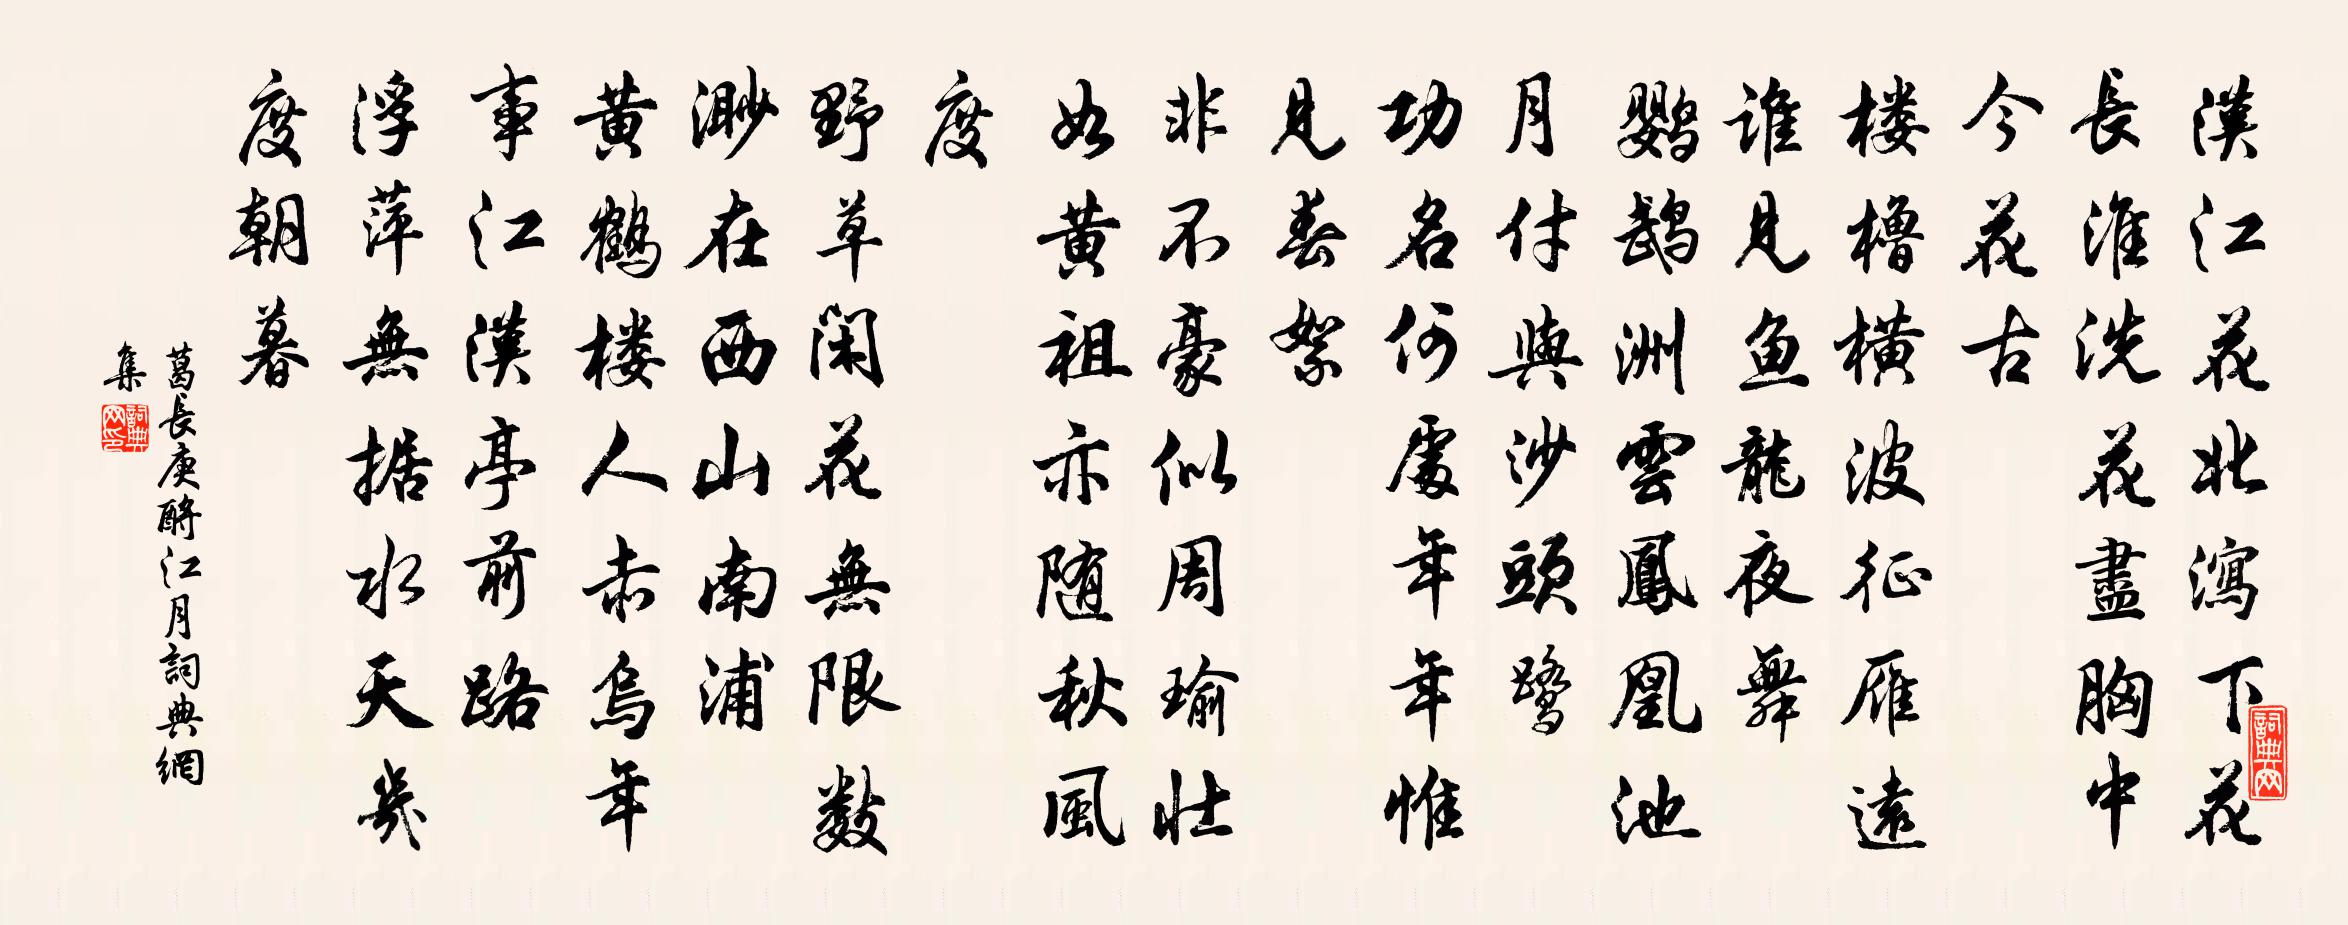 漢江花北瀉下花
長淮洗花盡胸中
今花古
楼櫓橫波征雁遠
誰見魚龍夜舞
鸚鵡洲雲鳳凰池
月付與沙頭鷺
功名何處年年惟
見春絮
非不豪似周瑜壯
如黄祖亦随秋風
度
野草閑花無限数
渺在西山南浦
黄鶴楼人赤烏年
事江漢亭前路
浮萍無据水天幾
度朝暮
葛長庚酹江月詞典網
集
詞典网印
詞典网